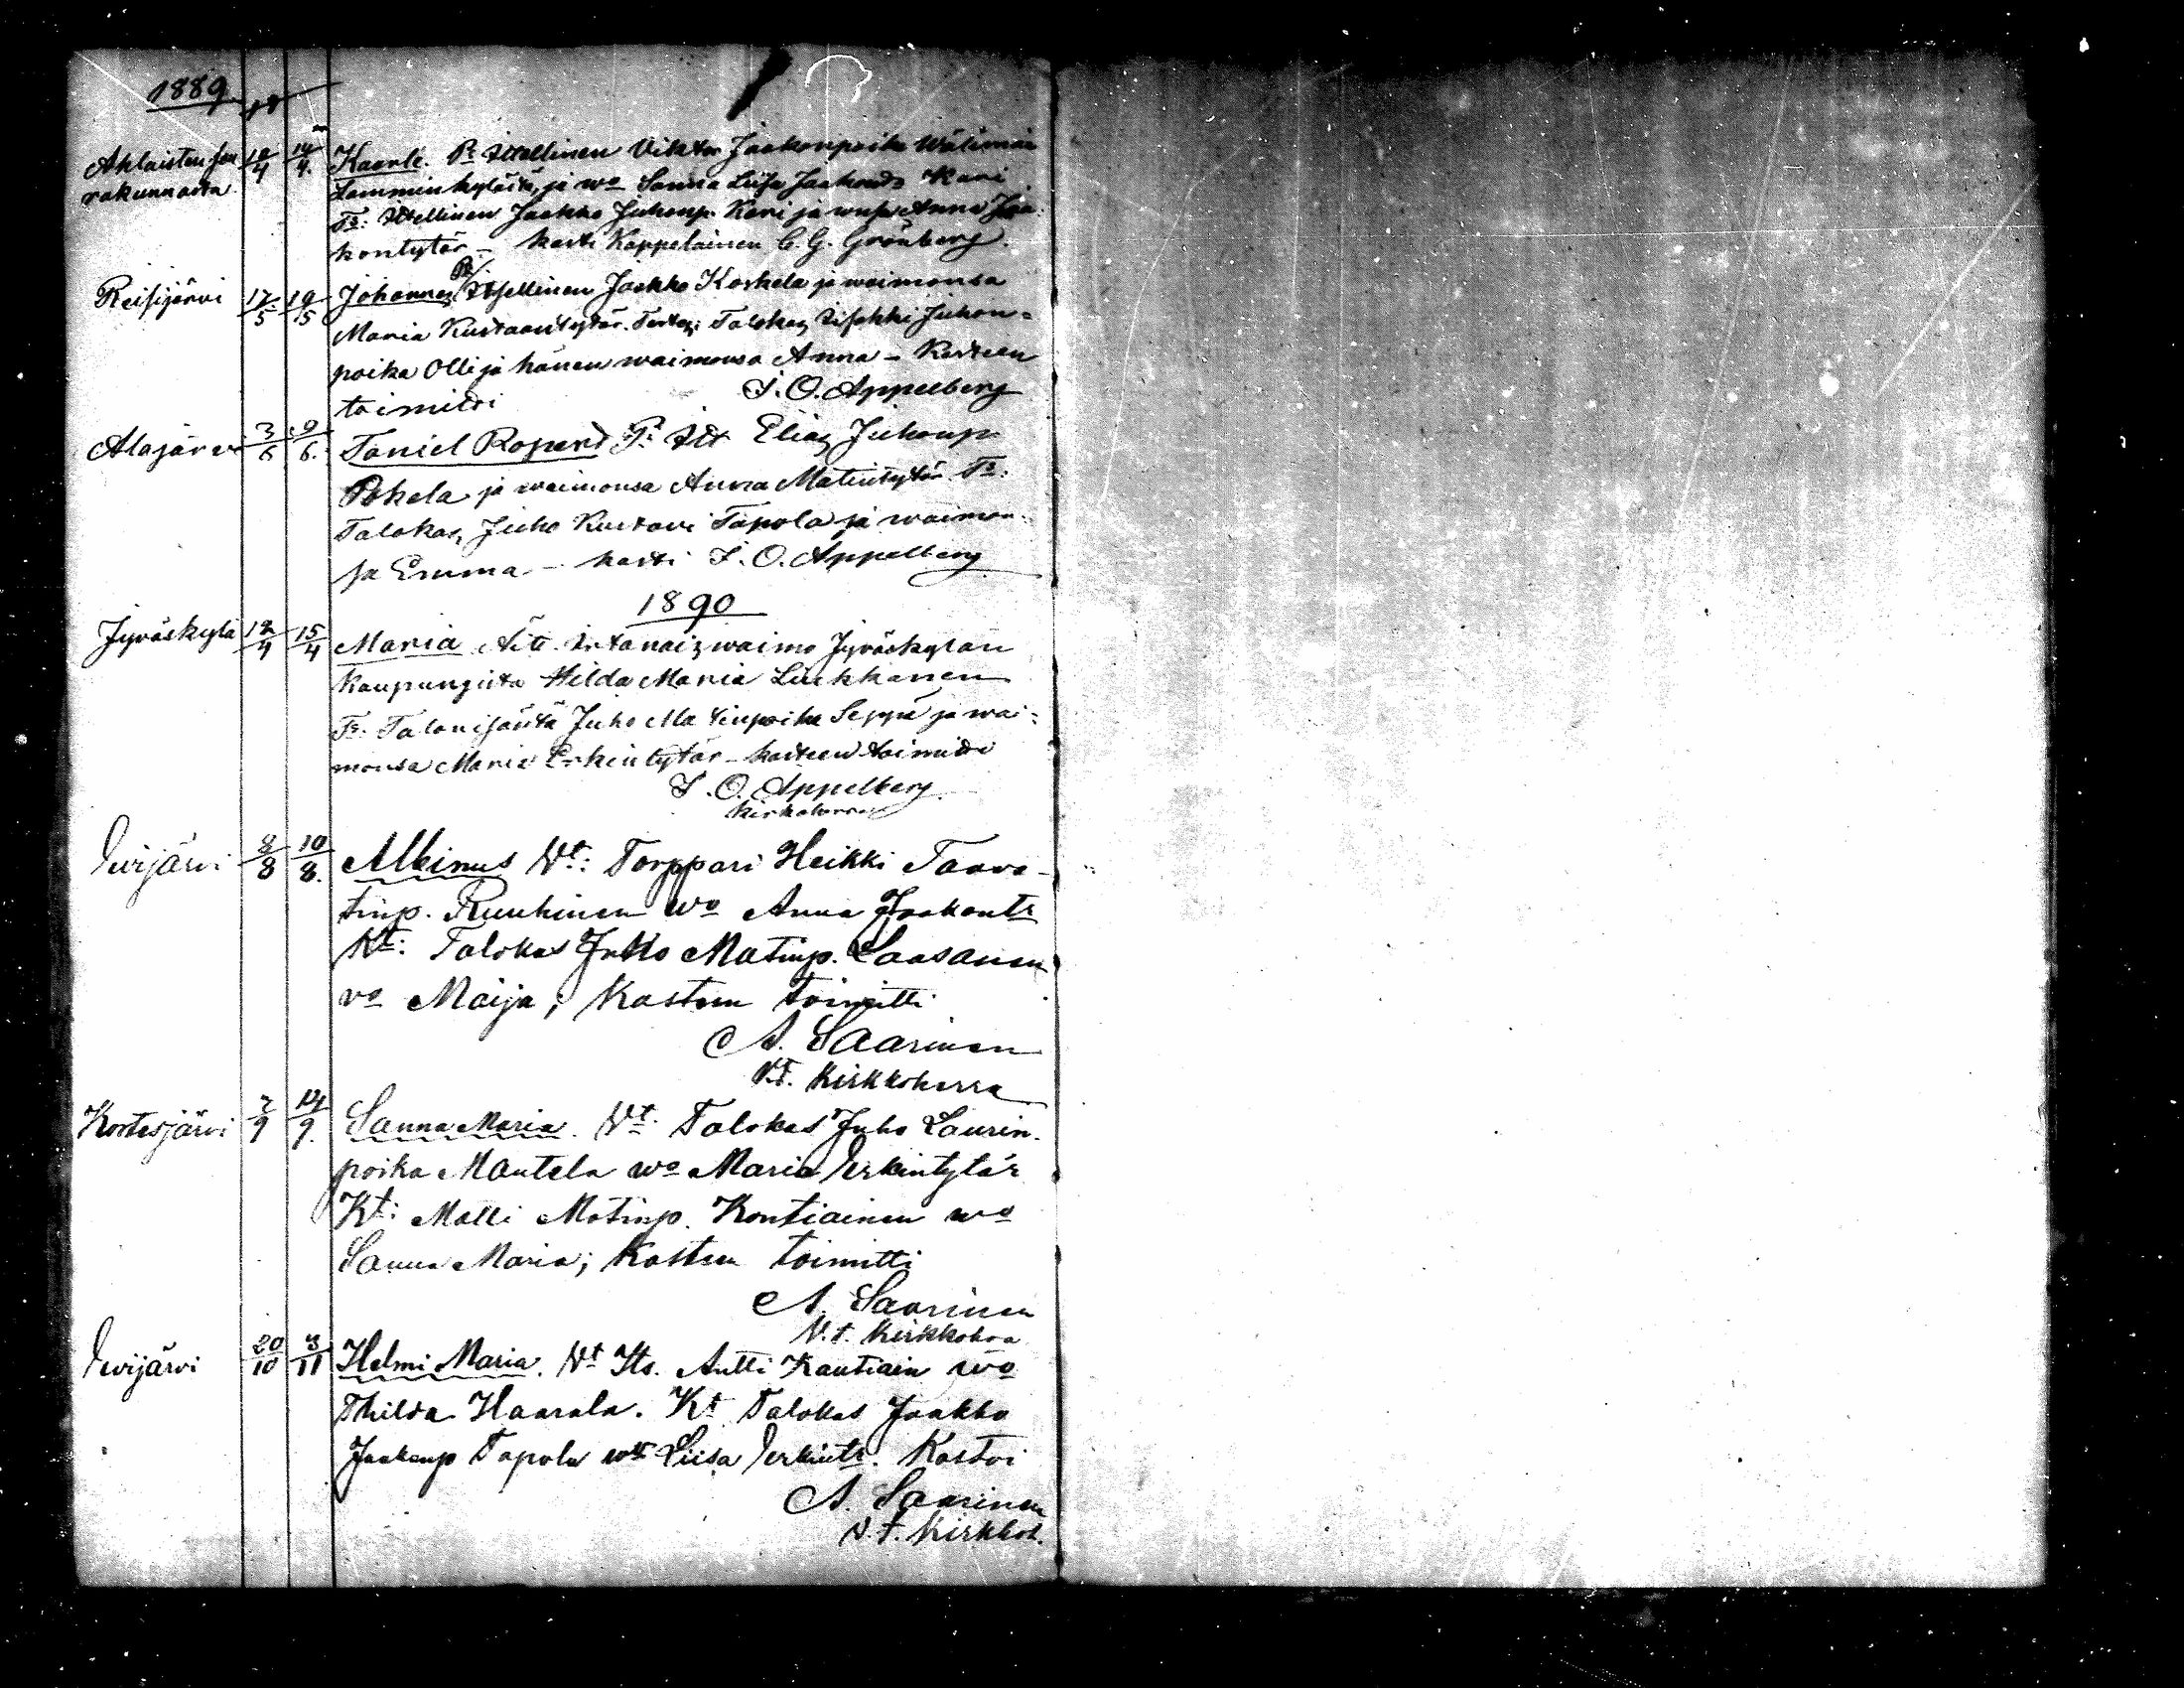 1889
Ahlaisten seu 12/4 14/4. Kaarle. Ps Itsellinen Viktor Jaakonpoika Wälimaa
rakunnasta Lamminkylästä, ja wo Sanna Liisa Jaakonds Kari
Ts: Itsellinen Jaakko Juhonp. Kari ja Anna Jaa
kontytär – kasti Kappelainen C. G. Grönberg.
Reisijärvi 17/5 19/5 Johannes Itsellinen Jaakko Koskela ja waimonsa
Maria Kustaantytär. Talokas Iisakki Juhon=
poika Olli ja hänen waimonsa Anna – Kasteen
toimitti J. O. Appelberg
Alajärvi 3/6 9/6. Taniel Ropert Ps Its Elias Juhonp.
Pokela ja waimonsa Anna Matintytär Ts:
Talokas, Juho Kustavi Tapola ja waimon=
sa Emma – kasti J. O. Appelberg
1890
Jyväskylä 12/4 15/4 Maria Äiti. Irtonais waimo Jyväskylän
Kaupungista Hilda Maria Liukkanen
Ts. Talonisäntä Juho Matinpoika Seppä ja wai=
monsa Maria Erkintytär – kasteen toimitti
J. O. Appelberg
Kirkoherra
Evijärvi 8/8 10/8. Albinus Vt: Torppari Heikki Taawe-
tinp. Ruuhinen wo Anna Jaakontr
Kt: Talokas Juho Matinp. Laasanen
vo Maija; Kasteen toimitti
A. Saarinen
V.T. Kirkkoherra
Kortesjärvi 7/9 14/9. Sanna Maria. Vt: Talokas Juho Laurin.
poika Mantela wo Maria Erkintytär
Kt: Matti Matinp. Kontiainen wo
Sanna Maria; Kasteen toimitti
A. Saarinen
V.t. Kirkkohra
Evijärvi 20/10 3/11 Helmi Maria. Vt Its. Antti Kautiain wo
Thilda Haarala. Kt Talokas Jaakko
Jaakonp Tapola wo Liisa Erkintr. Kastoi
A. Saarinen
V.t. Kirkkoh.